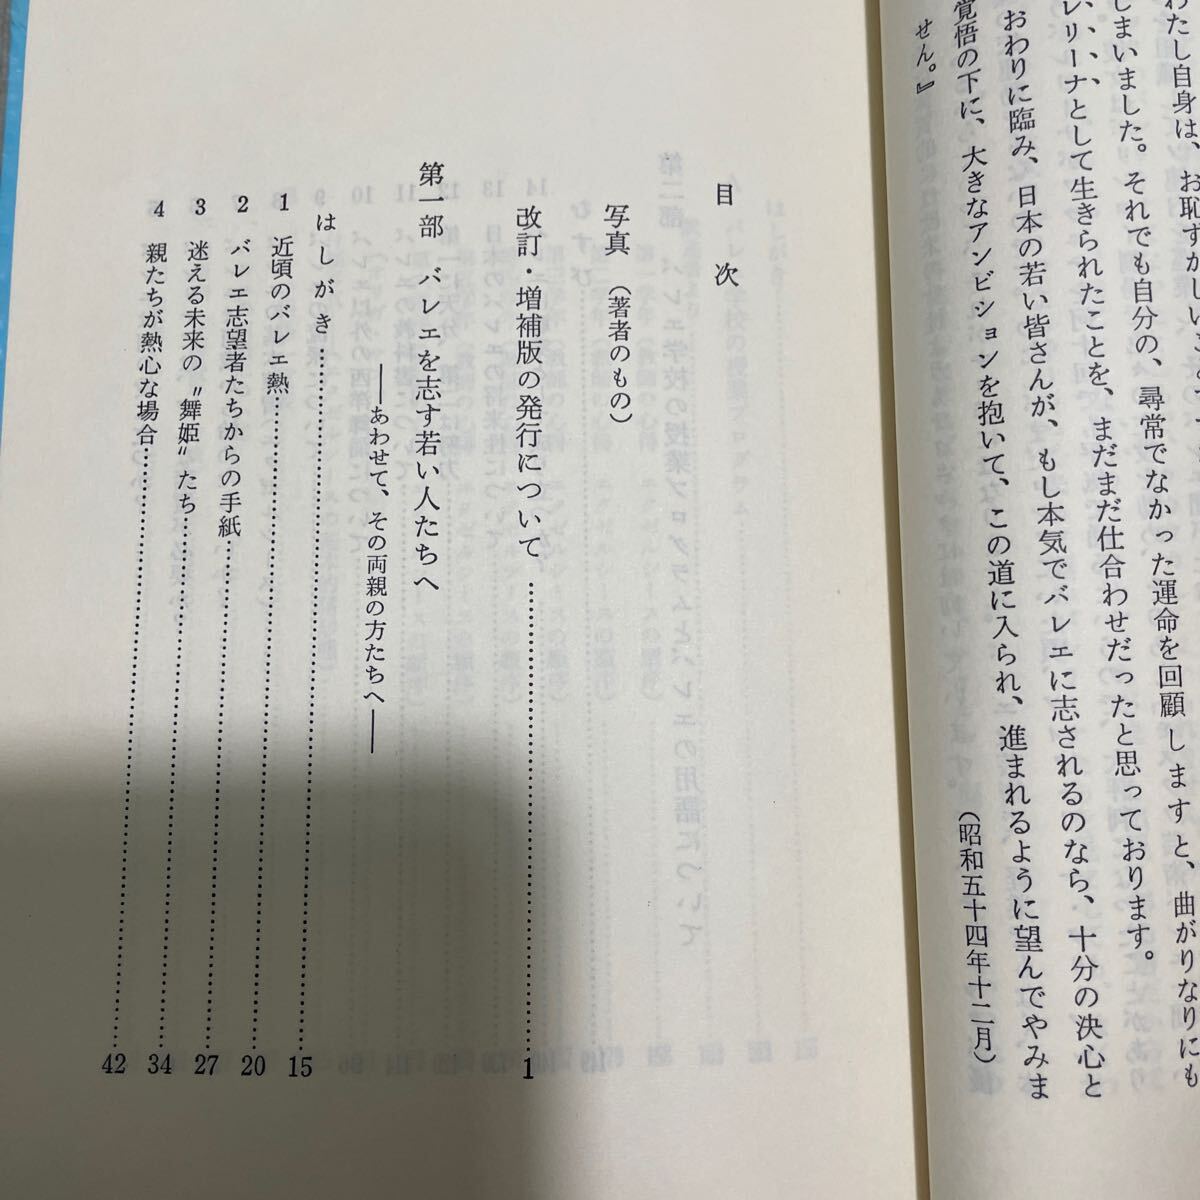 わたし自身は、お恥ずかしい
しまいました。それでも自分の、尋常でなかった運命を回顧しますと、曲がりなりにも
レリーナとして生きられたことを、まだまだ仕合わせだったと思っております。
おわりに臨み、日本の若い皆さんが、もし本気でバレエに志されるのなら、十分の決心と
覚悟の下に、大きなアンビションを抱いて、この道に入られ、進まれるように望んでやみま
せん。』
（昭和五十四年十二月）
目次
写真（著者のもの）
改訂・増補版の発行について……1
第一部　バレエを志す若い人たちへ
――あわせて、その両親の方たちへ――
はしがき……15
1　近頃のバレエ熱……20
2　バレエ志望者たちからの手紙……27
3　迷える未来の〝舞姫〟たち……34
4　親たちが熱心な場合……42